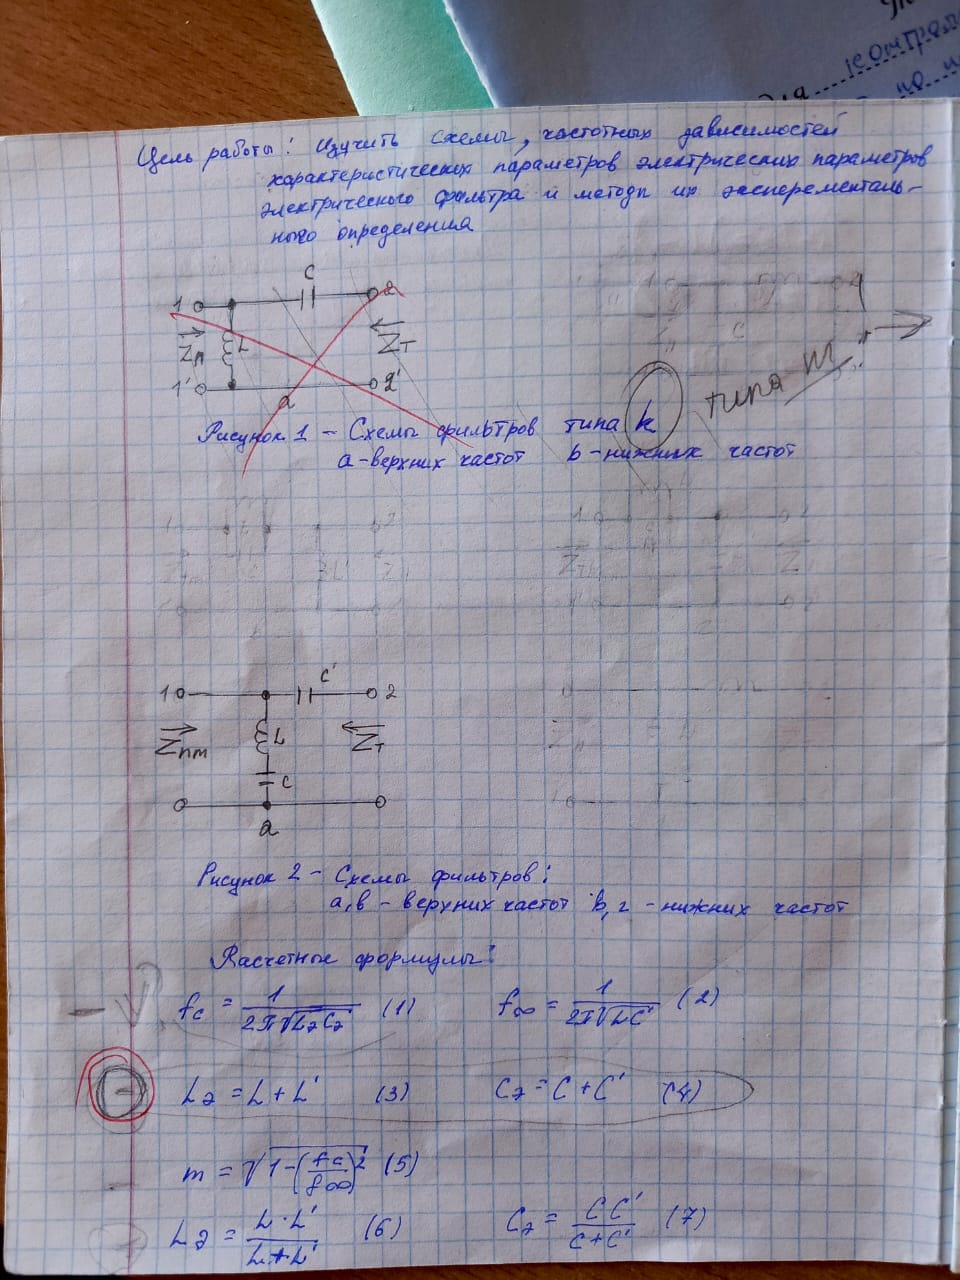 контрол
по
Цель работы: Изучить схемы, частотных зависимостей
характеристических параметров электрических параметров
электрического фильтра и методы их эксперименталь-
ного определения
1 C 2
Zп L ZT
1' 2'
a
типа m
Рисунок 1 - Схемы фильтров типа k
а-верхних частот b-нижних частот
1 C' 2
Zпm L ZT
C
a
Рисунок 2 - Схемы фильтров:
а,в - верхних частот b,г - нижних частот
Расчетные формулы:
fc = 1/(2π√LэCэ) (1) f∞ = 1/(2π√LC) (2)
Lэ = L + L' (3) Cэ = C + C' (4)
m = √1-(fc/f∞)² (5)
Lэ = L·L'/(L+L') (6) Cэ = CC'/(C+C') (7)